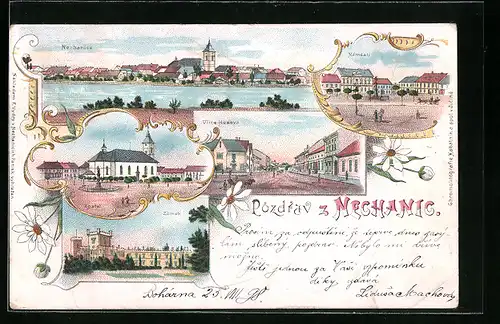 Nechanice
Náměstí
Ulice Husova
Kostel
Zámek
Pozdrav z NECHANIC.
Prosím za odpuštění, že teprve dnes zasý-
lám slíbený pozdrav. Nebylo mi dříve
možno.
Ještě jednou za Vaši vzpomínku
díky vzdává
Liduša Machova
Dohárna 25. III 98